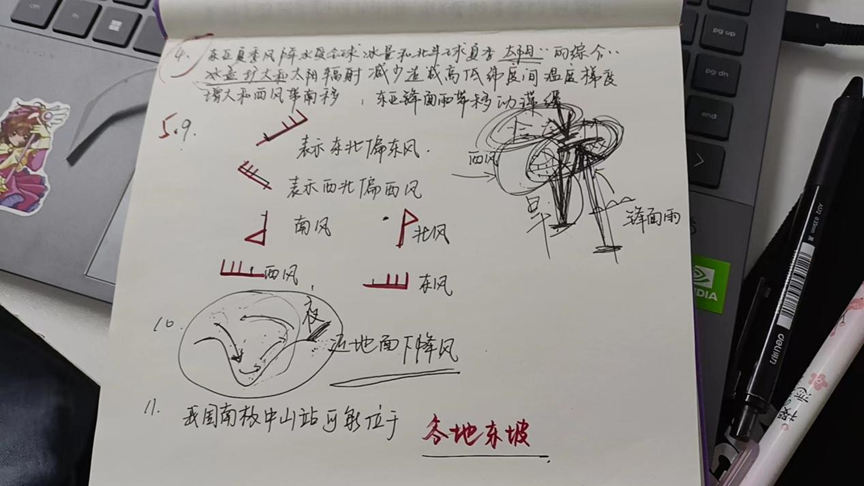 4. 东亚夏季风降水受全球冰量和北半球夏季太阳..的综合..
冰盖扩大和太阳辐射减少造成高低纬度间温度梯度
增大和西风带南移,东亚锋面雨带移动迟缓
5.9.
表示东北偏东风.
表示西北偏西风
南风
北风
西风,
东风
西风
旱
锋面雨
10.
夜
近地面下降风
11. 我国南极中山站可能位于
冬地东坡
pg up
pg dn
end
NVIDIA
deli